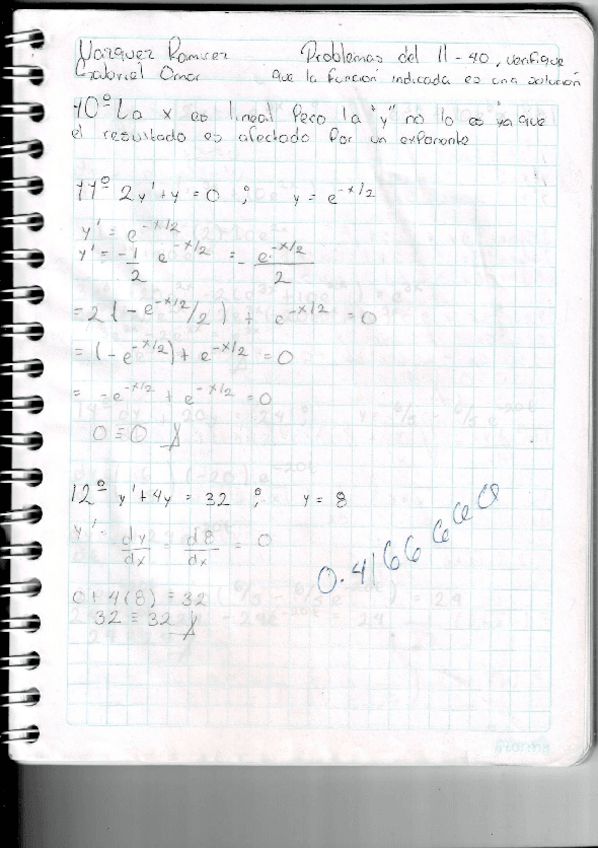 Vazquez Ramirez Problemas del 11-40, verifique
Gabriel Omar que la función indicada es una solución
10º La x es lineal Pero la "y" no lo es ya que
el resultado es afectado Por un exponente
11º 2y' + y = 0 ; y = e^{-x/2}
y' = e^{-x/2}
y' = -1/2 e^{-x/2} = - e^{-x/2}/2
= 2(-e^{-x/2}/2) + e^{-x/2} = 0
= (-e^{-x/2}) + e^{-x/2} = 0
= -e^{-x/2} + e^{-x/2} = 0
0 = 0
12º y' + 4y = 32 ; y = 8
y' = dy/dx = d8/dx = 0
0.4166666
0 + 4(8) = 32
32 = 32